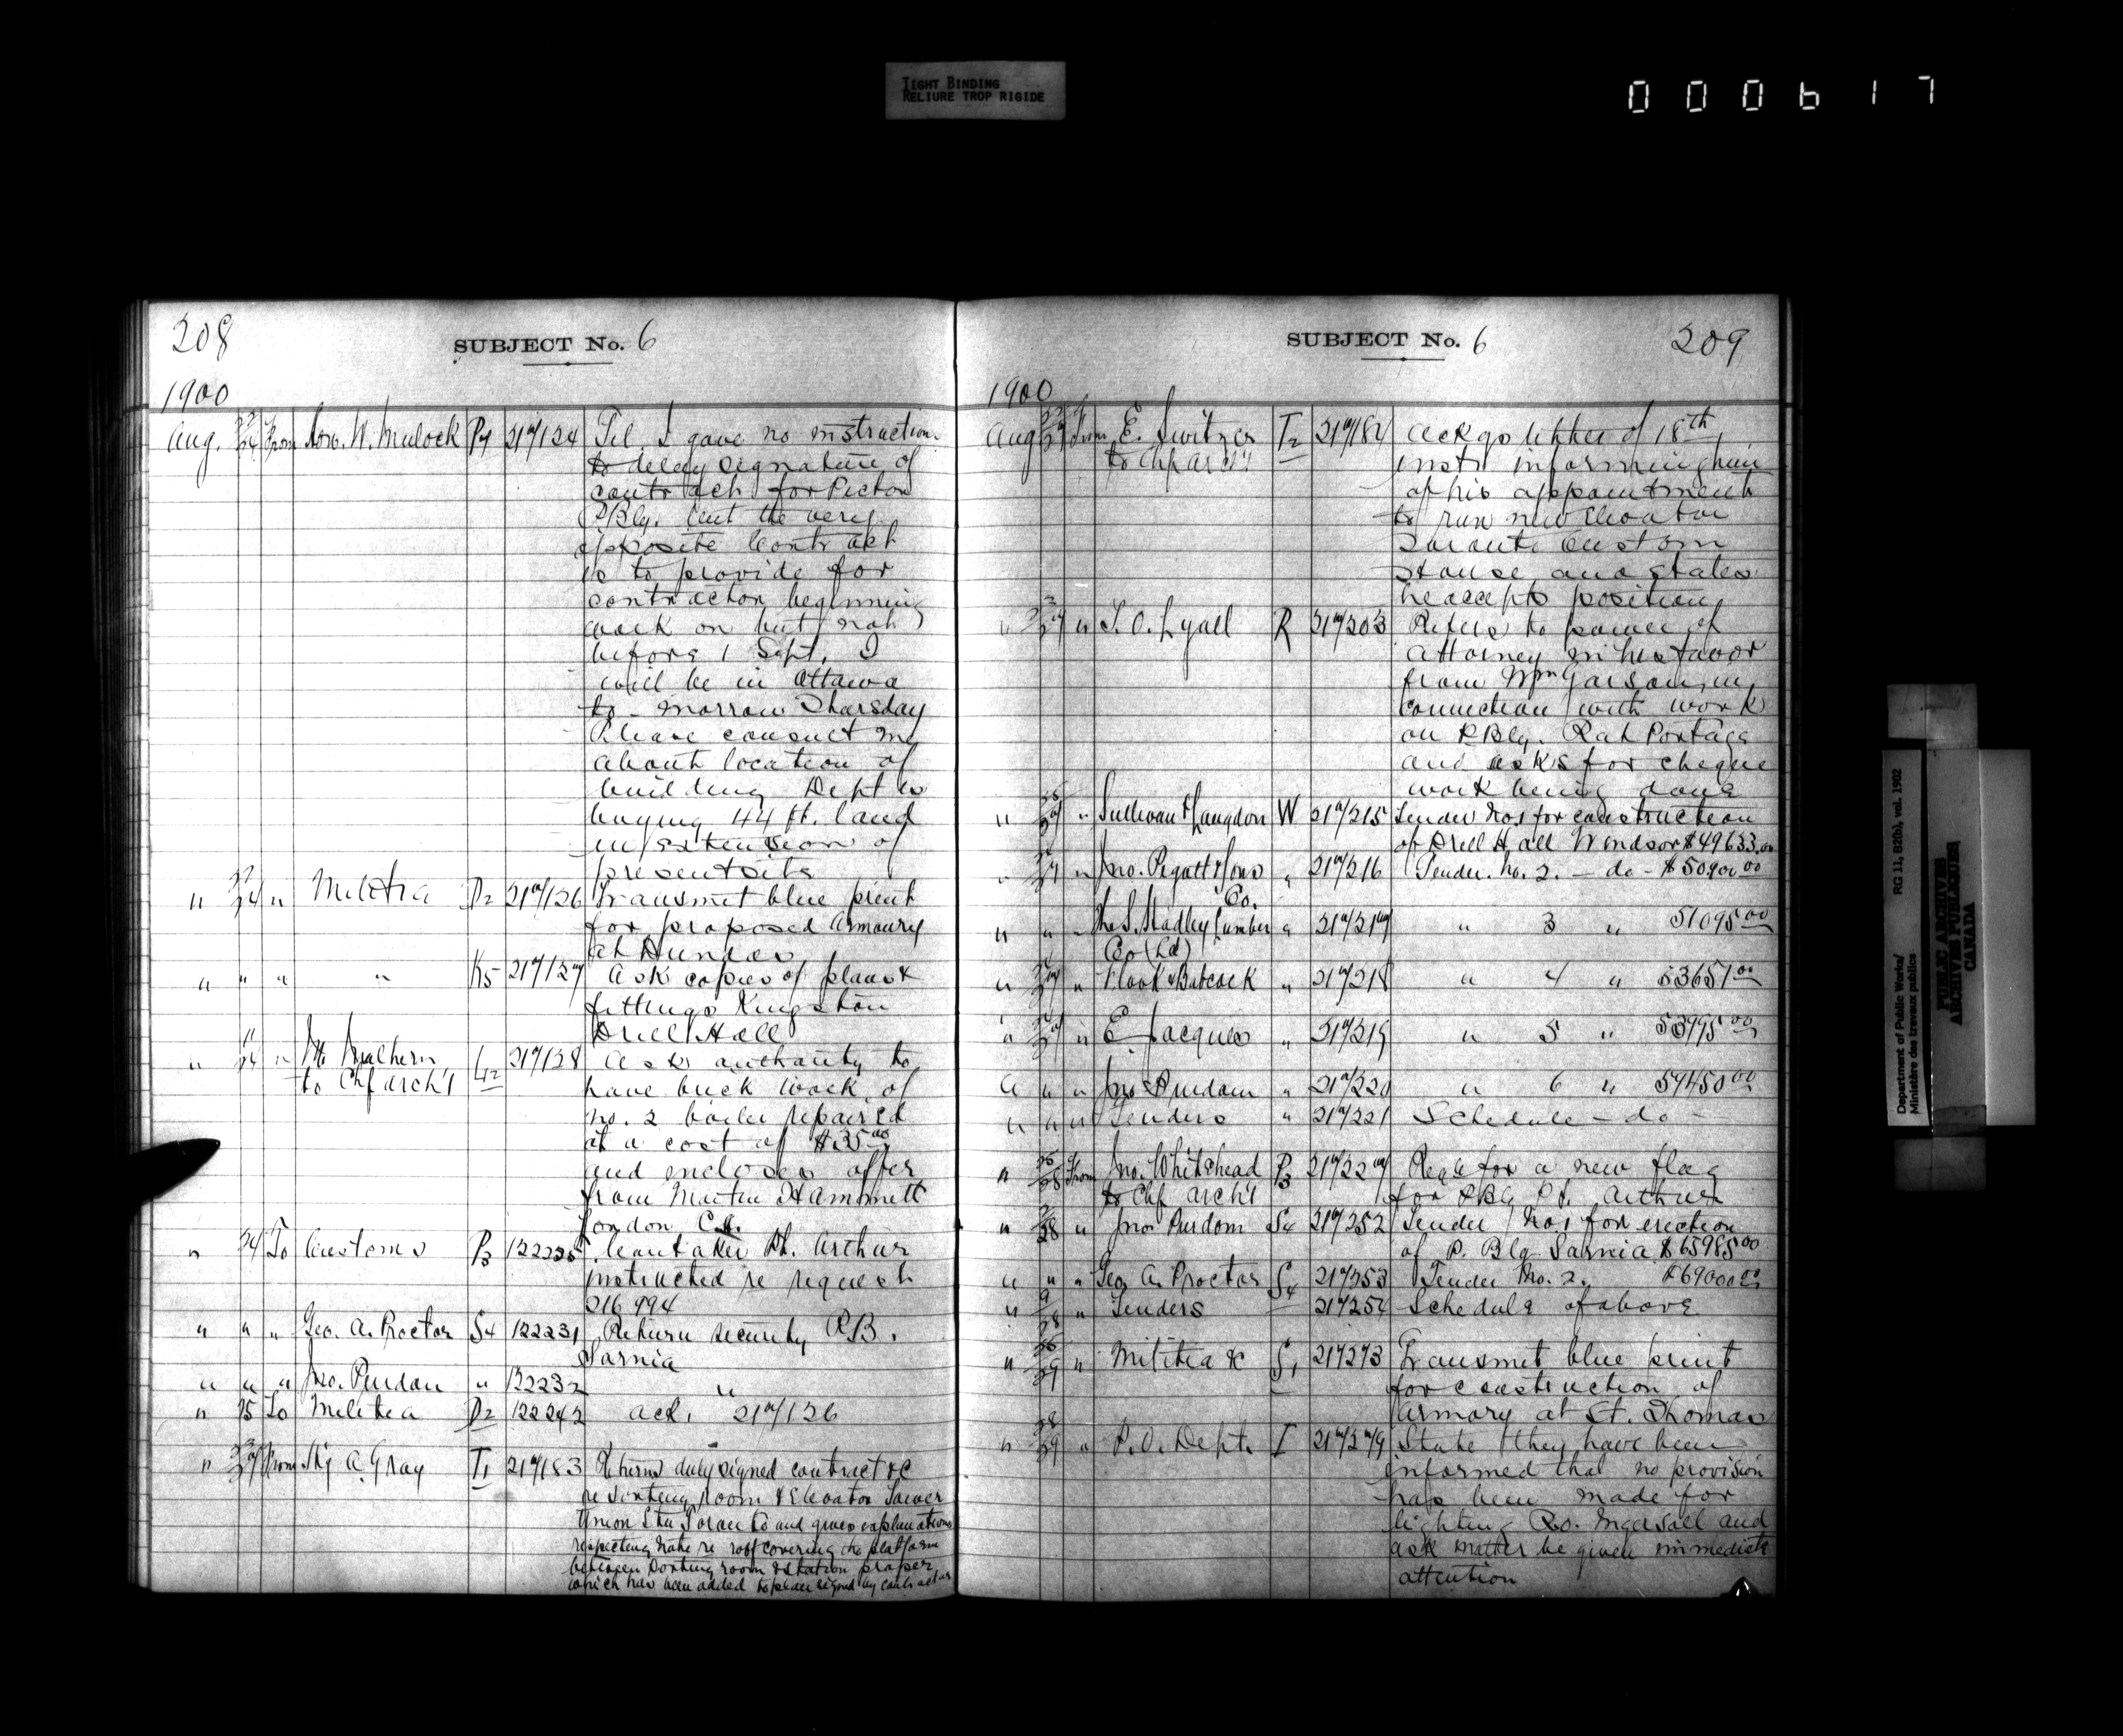 TIGHT BINDING
RELIURE TROP RIGIDE
000617
208
SUBJECT No. 6
1900
Aug. 22/24 From Hon. W. Mulock P4 217124 Tel. I gave no instructions
to delay signature of
contract for Picton
PBlg. but the very
opposite Contract
is to provide for
contractor beginning
work on but not
before 1 Sept. I
will be in Ottawa
to-morrow Thursday
Please consult me
about location of
building Dept is
buying 44 ft. land
in extension of
present site
" 22/24 " Militia D2 217126 Transmit blue print
for proposed Armoury
at Dundas
" " " " K5 217127 Ask copies of plans &
fittings Kingston
Drill Hall
" 24 " to Chf arch't L12 217138 Asks authority to
have brick work of
no. 2 boiler repaired
at a cost of $35.00
and encloses offer
from Martin Hammett
London
" 24 To Customs P3 122235 Caretaker Pt. Arthur
instructed re request
216994
" " " Geo. A. Proctor S4 122231 Return security P.B.
Sarnia
" " " Jno. Purdom " 122232 "
" 25 To Militia D2 122242 ack. 217126
" 23/27 From A. Gray T1 217183 Returns duly signed contract &c
re Sorting room & Elevator Tower
Union Stn Toronto and gives explanations
respecting note re roof covering the platform
between sorting room & station proper
which has been added to plan signed by contractor
SUBJECT No. 6
209
1900
Aug 22/27 From E. Switzer T2 217184 Ackgs letter of 18th
to Chf arch't inst. informing him
of his appointment
to run new Elevator
Toronto Custom
House and states
he accepts position
" 27 " T. O. Lyall R 217203 Refers to power of
attorney in his favor
from Wm Garson in
connection with work
on PBlg. Rat Portage
and asks for cheque
work being done
" 25/27 " Sullivan & Langdon W 217215 Tender No 1 for construction
of Drill Hall Windsor $49633.00
" 27 " Jno. Pigott & Sons " 217216 Tender. No. 2. - do - $50900.00
Co.
" " " The S. Hadley Lumber " 217217 " 3 " 51095.00
Co (Ld)
" 27 " & Babcock " 217218 " 4 " 53657.00
" 27 " E. Jacques " 217219 " 5 " 53995.00
" " " Jno Purdom " 217220 " 6 " 59450.00
" " " Tenders " 217221 Schedule - do -
" 25/28 From Jno. Whitehead P3 217227 Reqs for a new flag
to Chf arch't for PBG Pt. Arthur
" 28 " Jno Purdom S4 217252 Tender No 1 for erection
of P. Blg Sarnia $65985.00
" " " Geo. A. Proctor S4 217253 Tender No. 2. $69000.00
" 28 " Tenders 217254 Schedule of above
" 29 " Militia & S1 217273 Transmit blue print
for construction of
armory at St. Thomas
" 28/29 " P.O. Dept. I 217279 State they have been
informed that no provision
has been made for
lighting P.O. Ingersoll and
ask matter be given immediate
attention
Department of Public Works/ RG 11, B2(b), vol. 1902
Ministère des travaux publics
PUBLIC ARCHIVES
ARCHIVES PUBLIQUES
CANADA